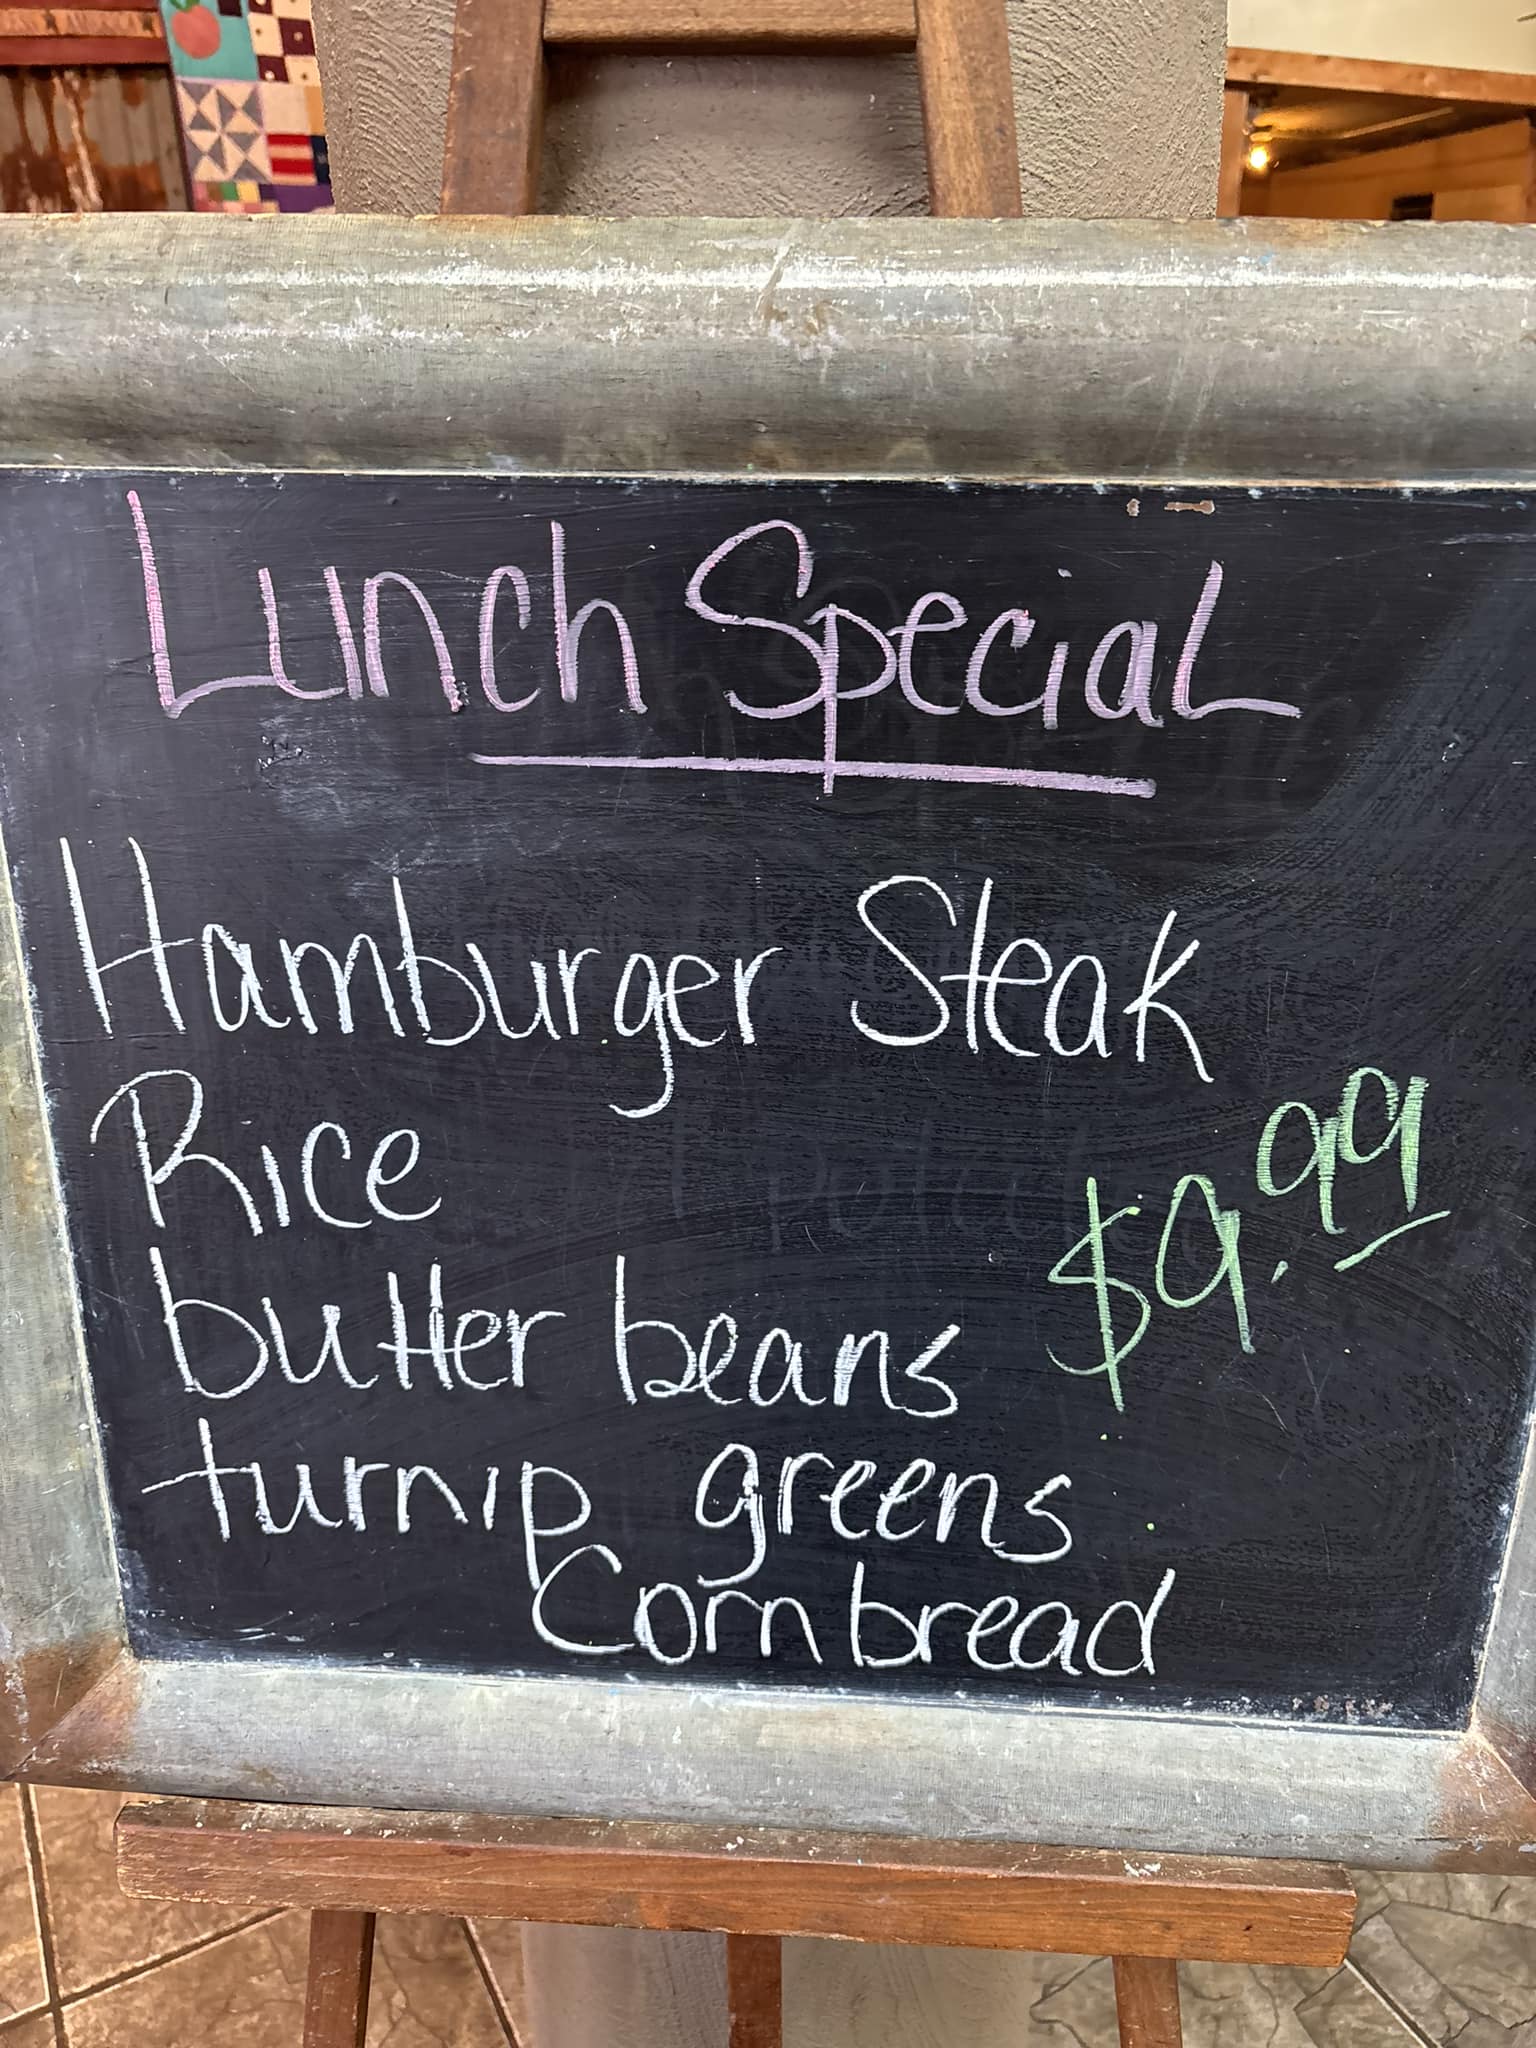 Lunch Special
Hamburger Steak
Rice
$9.99
butter beans
turnip greens
Cornbread